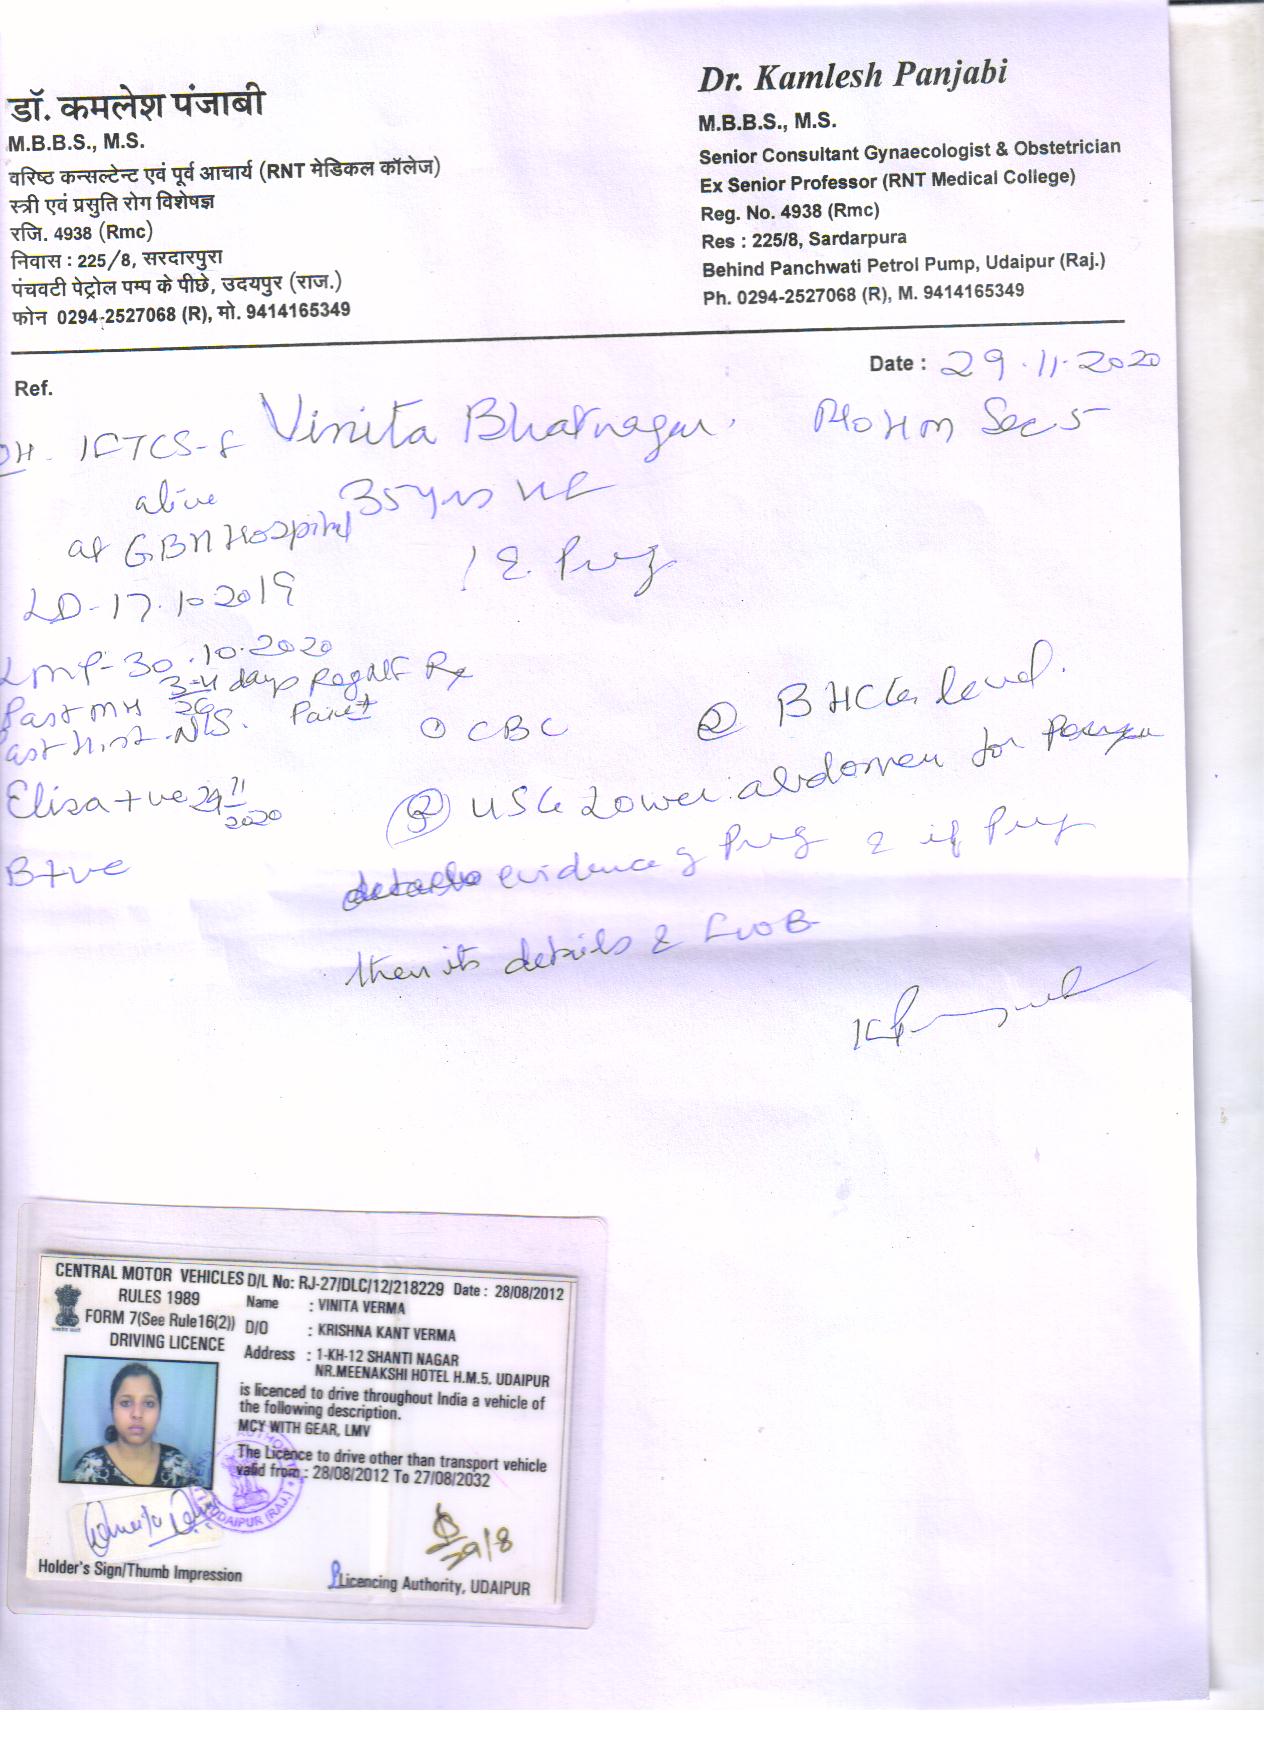 डॉ. कमलेश पंजाबी
M.B.B.S., M.S.
वरिष्ठ कन्सल्टेन्ट एवं पूर्व आचार्य (RNT मेडिकल कॉलेज)
स्त्री एवं प्रसुति रोग विशेषज्ञ
रजि. 4938 (Rmc)
निवास : 225/8, सरदारपुरा
पंचवटी पेट्रोल पम्प के पीछे, उदयपुर (राज.)
फोन 0294-2527068 (R), मो. 9414165349
Dr. Kamlesh Panjabi
M.B.B.S., M.S.
Senior Consultant Gynaecologist & Obstetrician
Ex Senior Professor (RNT Medical College)
Reg. No. 4938 (Rmc)
Res : 225/8, Sardarpura
Behind Panchwati Petrol Pump, Udaipur (Raj.)
Ph. 0294-2527068 (R), M. 9414165349
Date : 29.11.2020
Ref.
Vinita Bhatnagar. R/o HM Sec 5
OH. 1FTCS-F
alive
35yrs
at GBH Hospital
Preg
LD-17.10.2019
LMP-30.10.2020
Past MH 3-4 days Reg
Past Hist. NS.
① CBC
② BHCG level.
Elisa +ve 29/11/2020
③ USG Lower abdomen for
evidence of Preg & if Preg
B+ve
then its details & FWB
CENTRAL MOTOR VEHICLES RULES 1989
FORM 7(See Rule16(2))
DRIVING LICENCE
D/L No: RJ-27/DLC/12/218229 Date : 28/08/2012
Name : VINITA VERMA
D/O : KRISHNA KANT VERMA
Address : 1-KH-12 SHANTI NAGAR
NR.MEENAKSHI HOTEL H.M.5. UDAIPUR
is licenced to drive throughout India a vehicle of
the following description.
MCY WITH GEAR, LMV
The Licence to drive other than transport vehicle
valid from : 28/08/2012 To 27/08/2032
UDAIPUR (RAJ.)
29/8
Holder's Sign/Thumb Impression
Licencing Authority, UDAIPUR